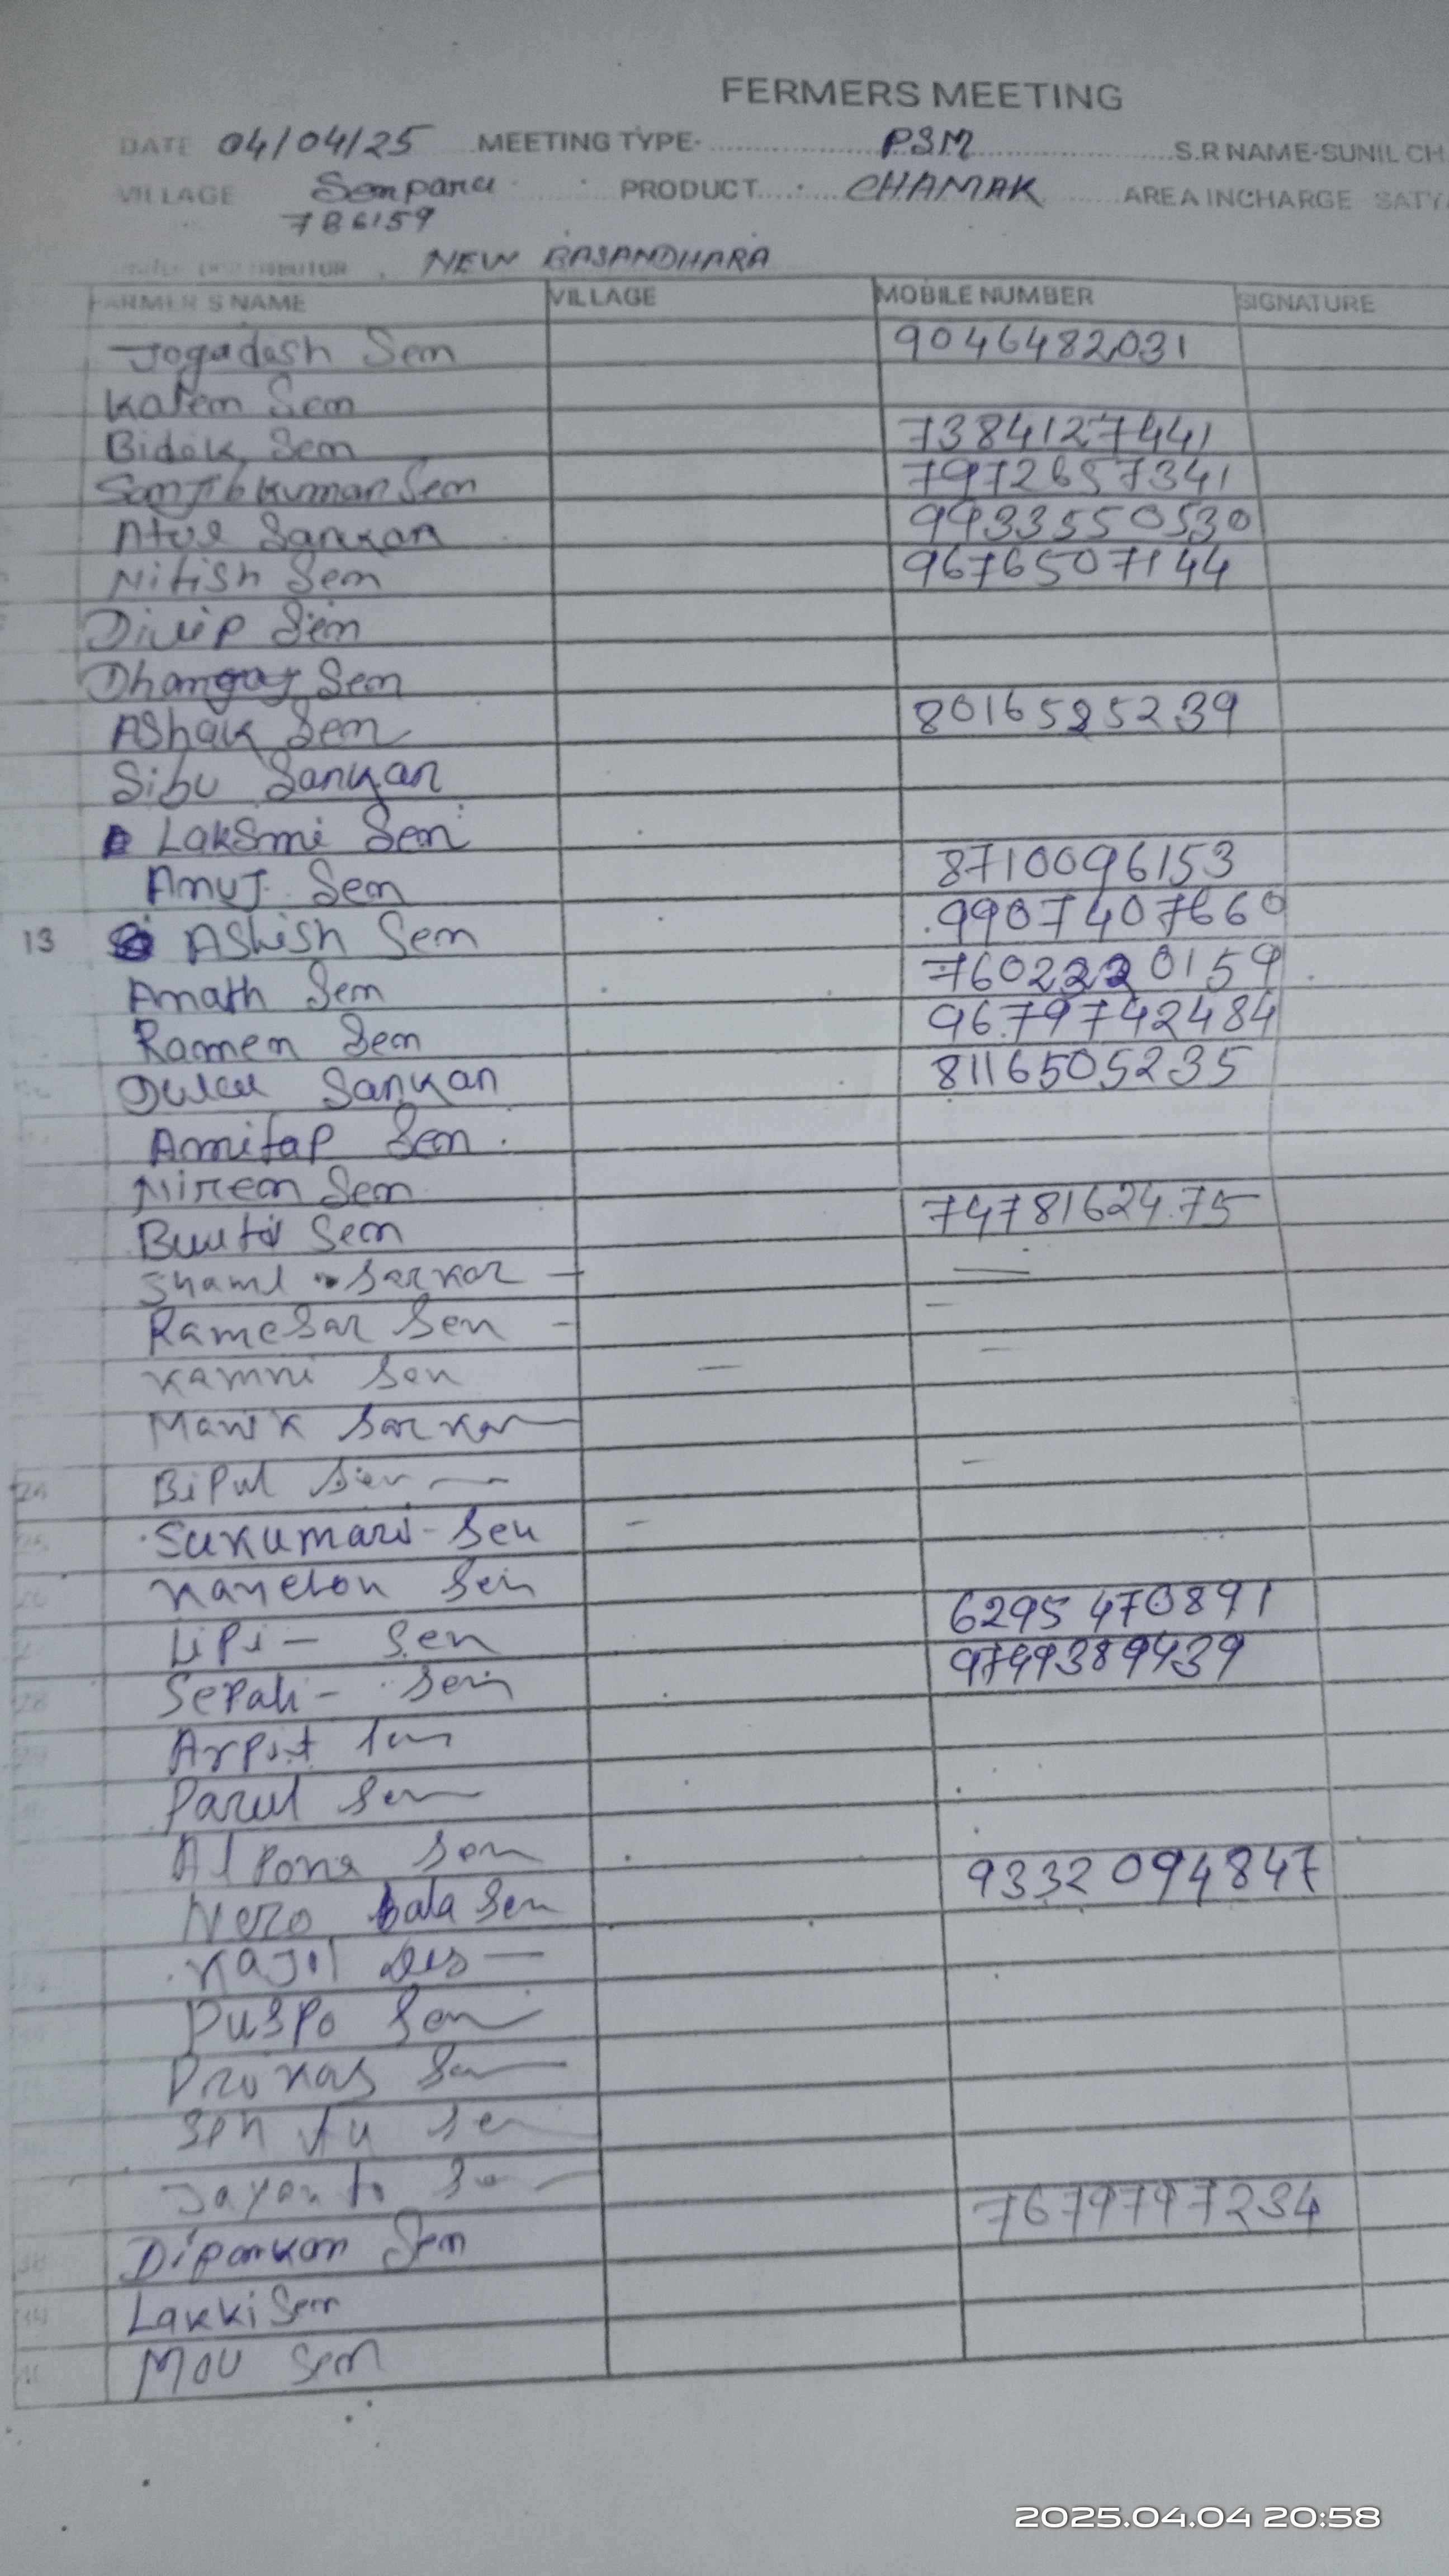 FERMERS MEETING
DATE 04/04/25 MEETING TYPE- PSM S.R NAME-SUNIL CH
VILLAGE Senpara PRODUCT CHAMAK AREA INCHARGE SATY
786159
DISTRIBUTOR NEW BASANDHARA
FARMER S NAME VILLAGE MOBILE NUMBER SIGNATURE
Jogadosh Sem 9046482031
Katem Sem
Bidok Sem 7384127441
Sanjib kuman Sem 7972657341
Atul Sankan 9933550530
Nitish Sem 9676507144
Dilip Sen
Sem
Ashak Sem 8016525239
Sibu Sankan
Laksmi Sen
Anuj Sem 8710096153
13 Ashish Sem 9907407660
Amath Sem 7602220159
Ramen Sem 9679742484
Sankan 8116505235
Amitap Sen
Miren Sem
Sem 7478162475
Shaml Sarkar
Ramesar Sen
Kamni Sen
Manik Sarkar
24 Bipul Sen
Sukumari - Sen
Sen
Lipi - Sen 6295 470891
28 Sepali - Sen 9749389439
Arpit Sen
Parul Sen
Alpona Sen
Nero bala Sen 9332 094847
Kajol Das
Puspo Sen
Prokas Sen
Sen
Jayanto Sen
Dipankan Sem 7679797234
Lakki Sem
Mou Sem
2025.04.04 20:58